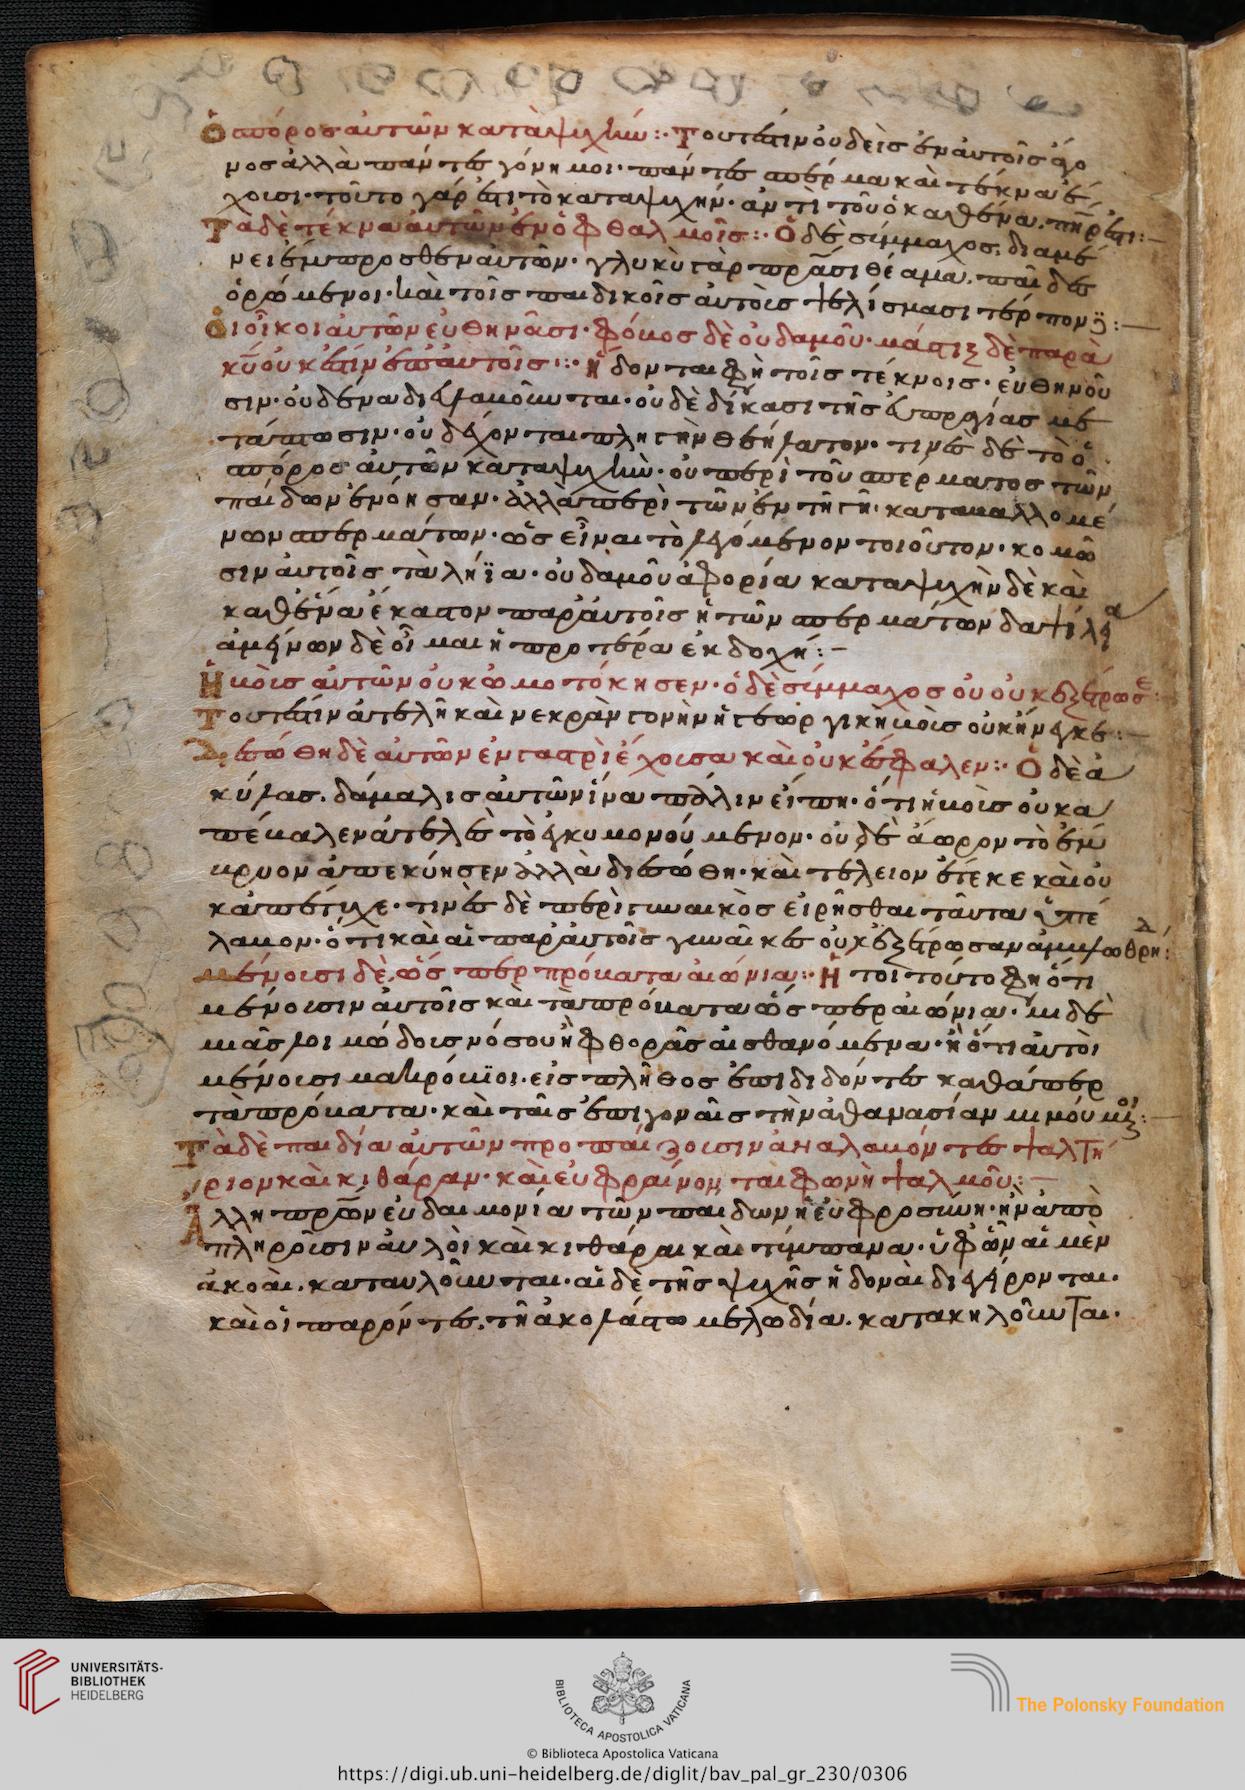 ὁ σπόρος αὐτῶν κατὰ ψυχήν:· Τουτέστιν οὐδεὶς ἐν αὐτοῖς ἄγο
νος ἀλλὰ πάντες γόνιμοι· πάντες σπέρμα καὶ τέκνα ἔ
χουσι· τοῦτο γάρ ἐστι τὸ κατὰ ψυχήν· ἀντὶ τοῦ ὁ καθένα
Τὰ δὲ τέκνα αὐτῶν ἐν ὀφθαλμοῖς:· Ὁ δὲ σύμμαχος, διαμέ
νει ἔμπροσθεν αὐτῶν· γλυκὺ γὰρ πρᾶσι θέαμα, παῖδες
ὁρώμενοι· καὶ τοῖς παιδικοῖς αὐτοὺς ψελίσμασι τέρποντες:—
Οἱ οἶκοι αὐτῶν εὐθηνοῦσι· φόβος δὲ οὐδαμοῦ· μάστιξ δὲ παρὰ
κυ οὐκ ἔστιν ἐπ' αὐτοῖς:· ἥδονται φη τοῖς τέκνοις· εὐθηνοῦ
σιν· οὐδένα διευλαβοῦνται· οὐδὲ δίκασι τῆς εὐπραγίας με
ταπίπτωσιν· οὐ δέχονται πληγὴν θεήλατον· τινὲς δὲ τὸ ὁ
σπόρος αὐτῶν κατὰ ψυχὴν· οὐ περὶ τοῦ σπέρματος τῶν
παίδων ἐνόησαν· ἀλλὰ περὶ τῶν ἐν τῇ γῇ καταβαλλομέ
νων σπερμάτων· ὡς εἶναι τὸ λεγόμενον τοιοῦτον· κομῶ
σιν αὐτοῖς τὰ λήϊα· οὐδαμοῦ ἀφορία κατὰ ψυχὴν δὲ καὶ
καθένα ἕκαστον παρ' αὐτοῖς ἡ τῶν σπερμάτων δαψίλεια
ἀμείνων δὲ οἶμαι ἡ προτέρα ἐκδοχή:—
Ἡ βοῦς αὐτῶν οὐκ ὠμοτόκησεν· ὁ δὲ σύμμαχος οὐ οὐκ ἐξέτρωσε:
Τουτέστιν ἀτελῆ καὶ νεκρὰν γονὴν ἡ γεωργικὴ βοῦς οὐκ ἤνεγκε:—
Διεσώθη δὲ αὐτῶν ἐν γαστρὶ ἔχουσα καὶ οὐκ ἔσφαλεν:· Ὁ δὲ ἀ
κύλας, δάμαλις αὐτῶν ἵνα πάλιν εἴπῃ· ὅτι ἡ βοῦς οὐκ ἀ
πέβαλεν ἀτελὲς τὸ ἐγκυμονούμενον· οὐδὲ ἄωρον τὸ ἔμ
βρυον ἀπεκύησεν ἀλλὰ διεσώθη· καὶ τέλειον ἔτεκε καὶ οὐ
κ ἀπέτυχε· τινὲς δὲ περὶ γυναικὸς εἰρῆσθαι ταῦτα ὑπέ
λαβον· ὅτι καὶ αἱ παρ' αὐτοῖς γυναῖκες οὐκ ἐξέτρωσαν
Μένουσι δὲ, ὥσπερ πρόβατα αἰώνια:· Ἤτοι τοῦτο φη ὅτι
μένουσιν αὐτοῖς καὶ τὰ πρόβατα ὥσπερ αἰώνια, μηδὲ
μιᾶς λοιμώδους νόσου ἢ φθορᾶς αἰσθανόμενα· ἢ ὅτι αὐτοὶ
μένουσι μακρόβιοι· εἰς πλῆθος ἐπιδιδόντες καθάπερ
τὰ πρόβατα· καὶ ταῖς ἐπιγοναῖς τὴν ἀθανασίαν μιμούμενοι:—
Τὰ δὲ παιδία αὐτῶν προσπαίζουσιν ἀναλαβόντες ψαλτή
ριον καὶ κιθάραν· καὶ εὐφραίνονται φωνῇ ψαλμοῦ:—
Ἄλλη πρώτων εὐδαιμονία τῶν παίδων ἡ εὐφροσύνη· ἣν ἀπο
πληροῦσιν αὐλοὶ καὶ κιθάραι καὶ τύμπανα· ὑφ' ὧν αἱ μὲν
ἀκοαὶ, καταυλοῦνται· αἱ δὲ τῆς ψυχῆς ἡδοναὶ διεγείρονται·
καὶ οἱ παρόντες, τῇ ἀκολάστῳ μελωδίᾳ, κατακηλοῦνται·
UNIVERSITÄTS-
BIBLIOTHEK
HEIDELBERG
BIBLIOTECA APOSTOLICA VATICANA
The Polonsky Foundation
© Biblioteca Apostolica Vaticana
https://digi.ub.uni-heidelberg.de/diglit/bav_pal_gr_230/0306